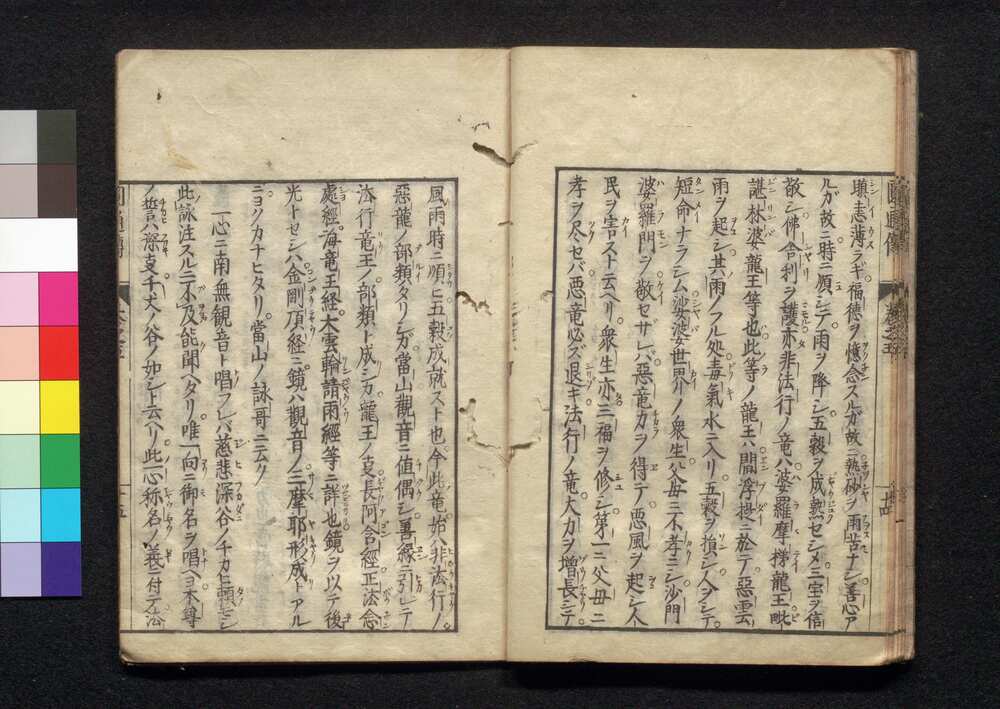 瞋恚薄ラギ福徳ヲ憶念スルガ故ニ熱砂ヲ雨苦ナシ善心ア
ルガ故ニ時ニ順シテ雨ヲ降シ五穀ヲ成熟セシメ三宝ヲ信
敬シ佛舎利ヲ護亦非法行ノ竜ハ婆羅摩梯龍王毗
諶林婆龍王等也此等ノ龍王ハ閻浮提ニ於テ悪雲
雨ヲ起シ其雨ノフル処毒氣水ニ入リ五穀ヲ損シ人ヲシテ
短命ナラシム娑婆世界ノ衆生父母ニ不孝ニシ沙門
婆羅門ヲ敬セサレバ惡竜力ヲ得テ悪風ヲ起シ人
民ヲ害スト云ヘリ衆生亦三福ヲ修シ第一ニ父母ニ
孝ヲ尽セバ悪竜必ズ退キ法行ノ竜大力ヲ増長シテ
風雨時ニ順ヒ五穀成就スト也今此竜始ハ非法行ノ
惡龍ノ部類タリシガ當山觀音ニ値偶シ善縁ニ引レテ
法行竜王ノ部類ト成シカ龍王ノ支長阿含經正法念
處經海竜王経大雲輪請雨経等ニ詳也鏡ヲ以テ後
光トセシハ金剛頂経ニ鏡ハ觀音ノ三摩耶形成トアル
ニヨクカナヒタリ當山ノ詠哥ニ云ク
一心ニ南無観音ト唱フレバ慈悲深谷ノチカヒ頼モシ
此詠注スルニ不及能聞ヘタリ唯一向ニ御名ヲ唱ヘヨ本尊
ノ誓ハ深支千丈ノ谷ノ如シト云ヘリ此一心称名ノ義ニ付テ法